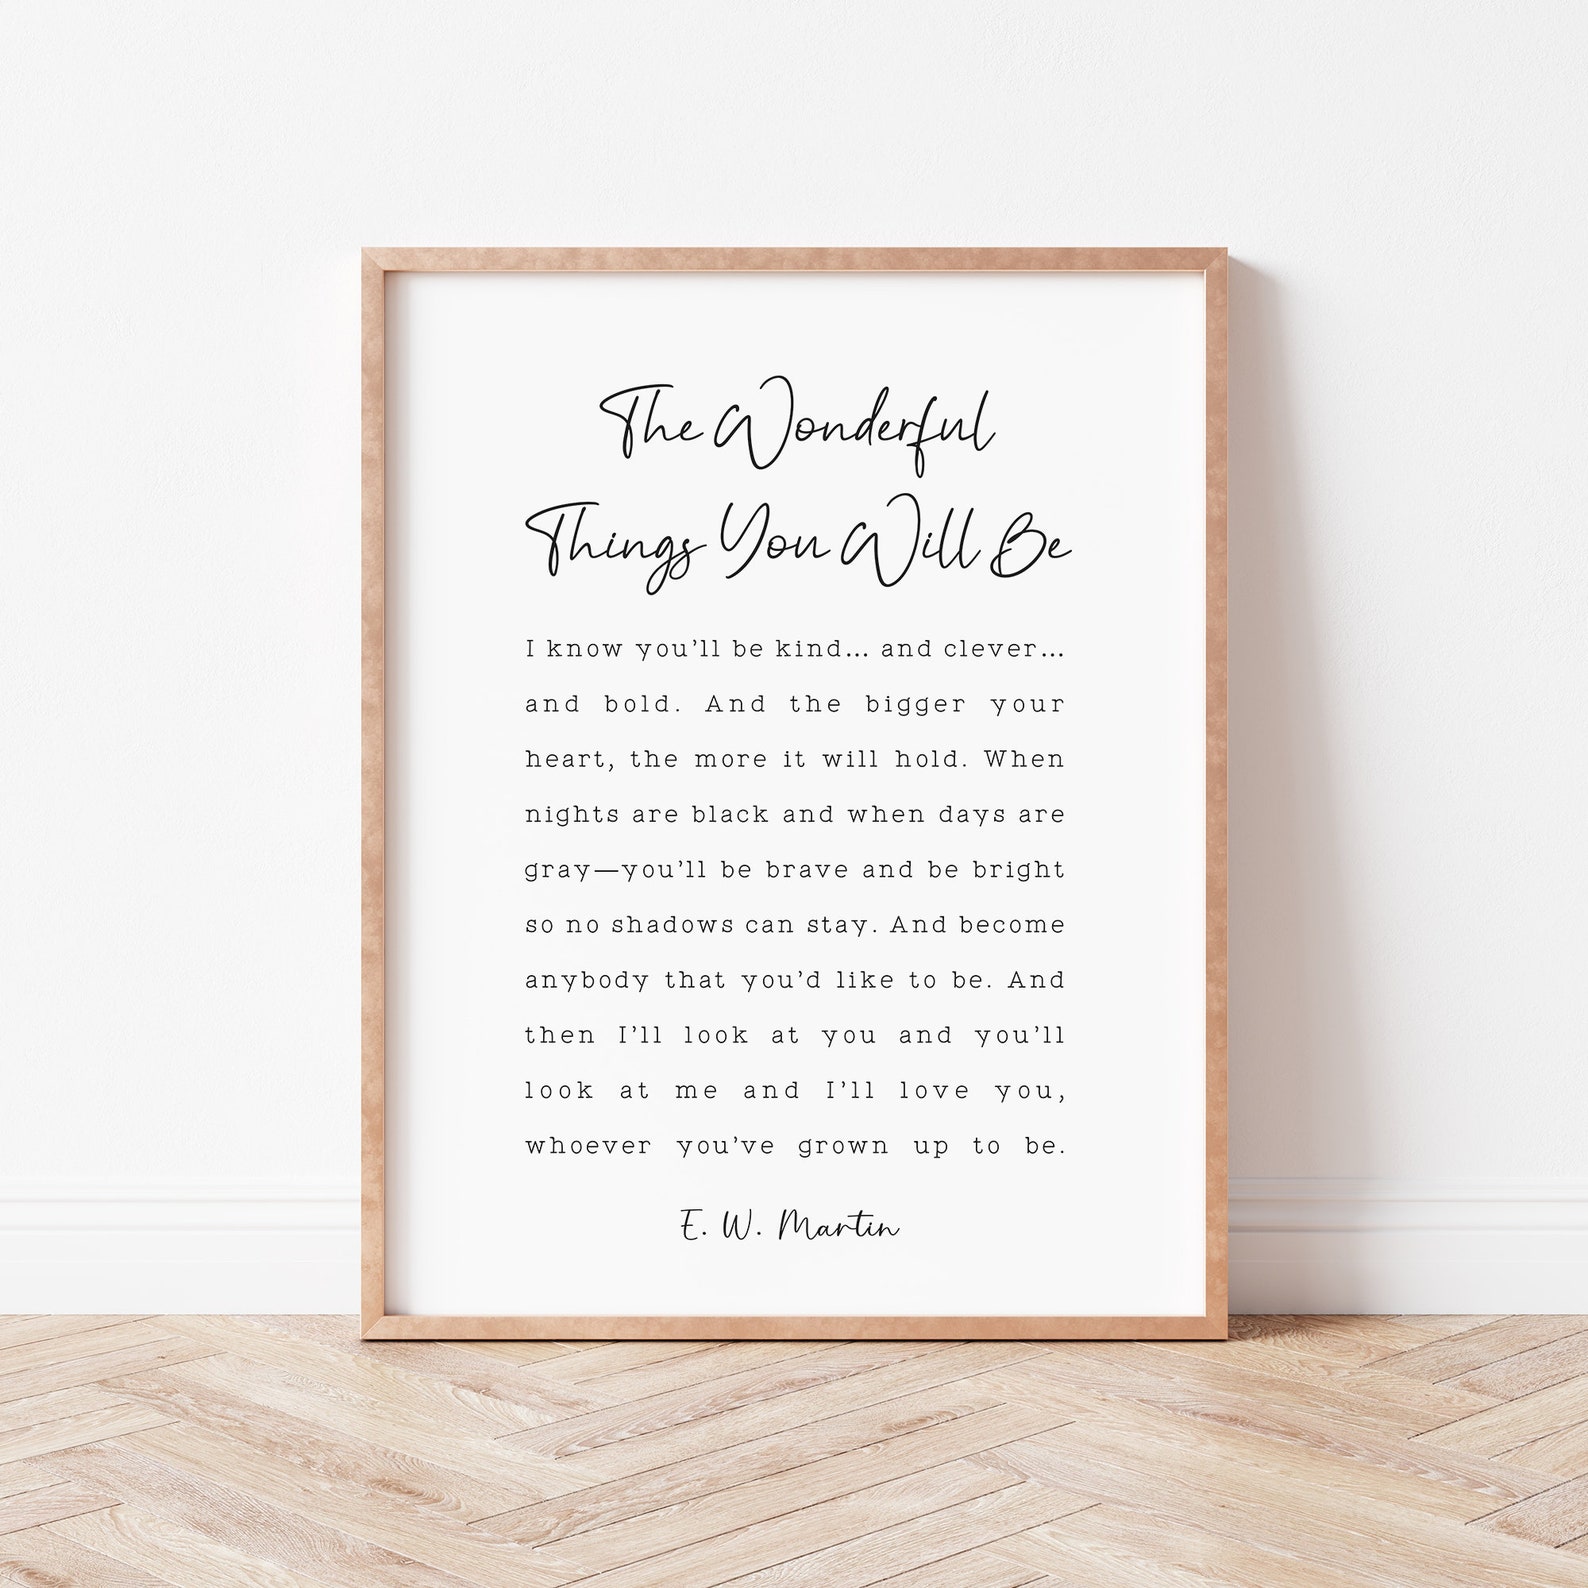 The Wonderful
Things You Will Be
I know you’ll be kind... and clever...
and bold. And the bigger your
heart, the more it will hold. When
nights are black and when days are
gray—you’ll be brave and be bright
so no shadows can stay. And become
anybody that you’d like to be. And
then I’ll look at you and you’ll
look at me and I’ll love you,
whoever you’ve grown up to be.
E. W. Martin